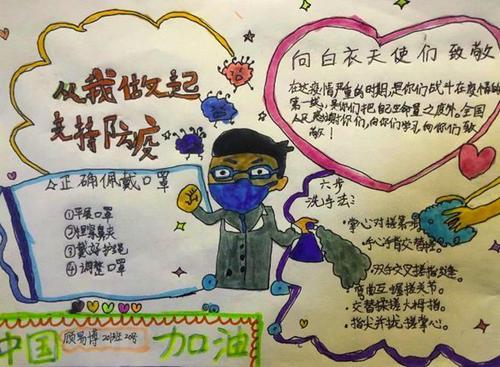 从我做起
支持防疫
向白衣天使们致敬
在这疫情严重的时期,是你们战斗在疫情的
第一线,是你们把自己生命置之度外。全国
人民感谢你们,向你们学习,向你们致
敬!
正确佩戴口罩
①平展口罩
②
③戴好
④调整口罩
六步
洗手法:
·掌心对搓
·手心手背交替搓。
·双手交叉搓指缝。
·弯曲互握搓关节。
·交替揉搓大拇指。
·指尖并拢搓掌心。
中国 加油
顾易博